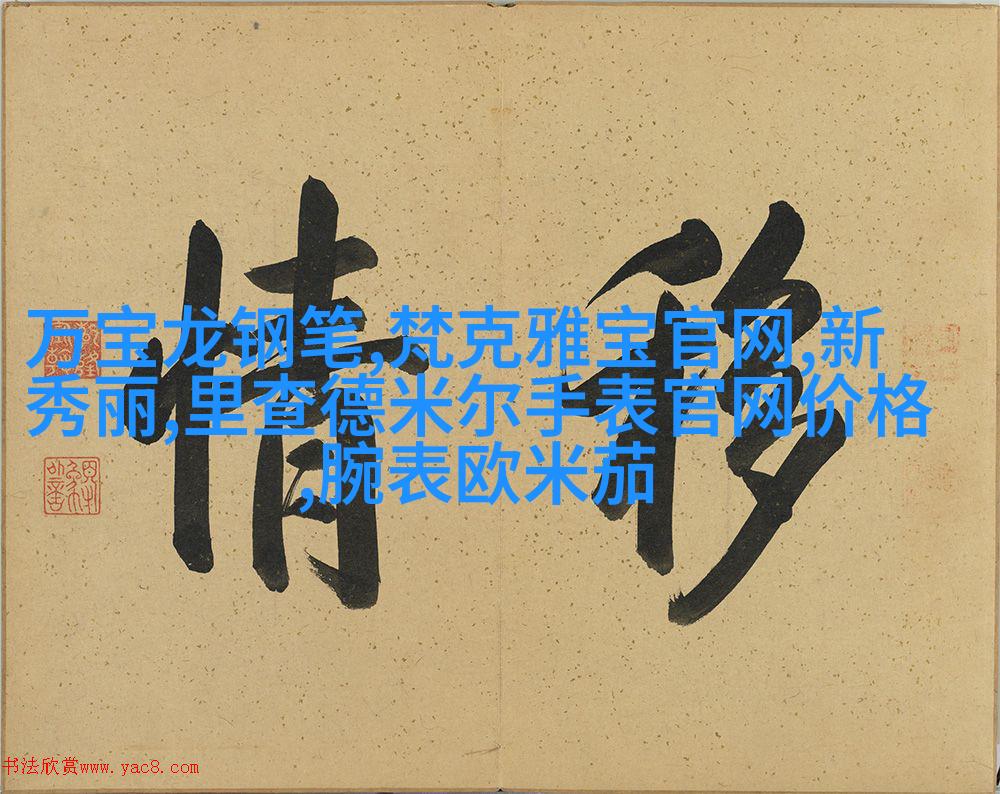 移情
万宝龙钢笔,梵克雅宝官网,新
秀丽,里查德米尔手表官网价格
,腕表欧米茄
书法欣赏www.yac8.com